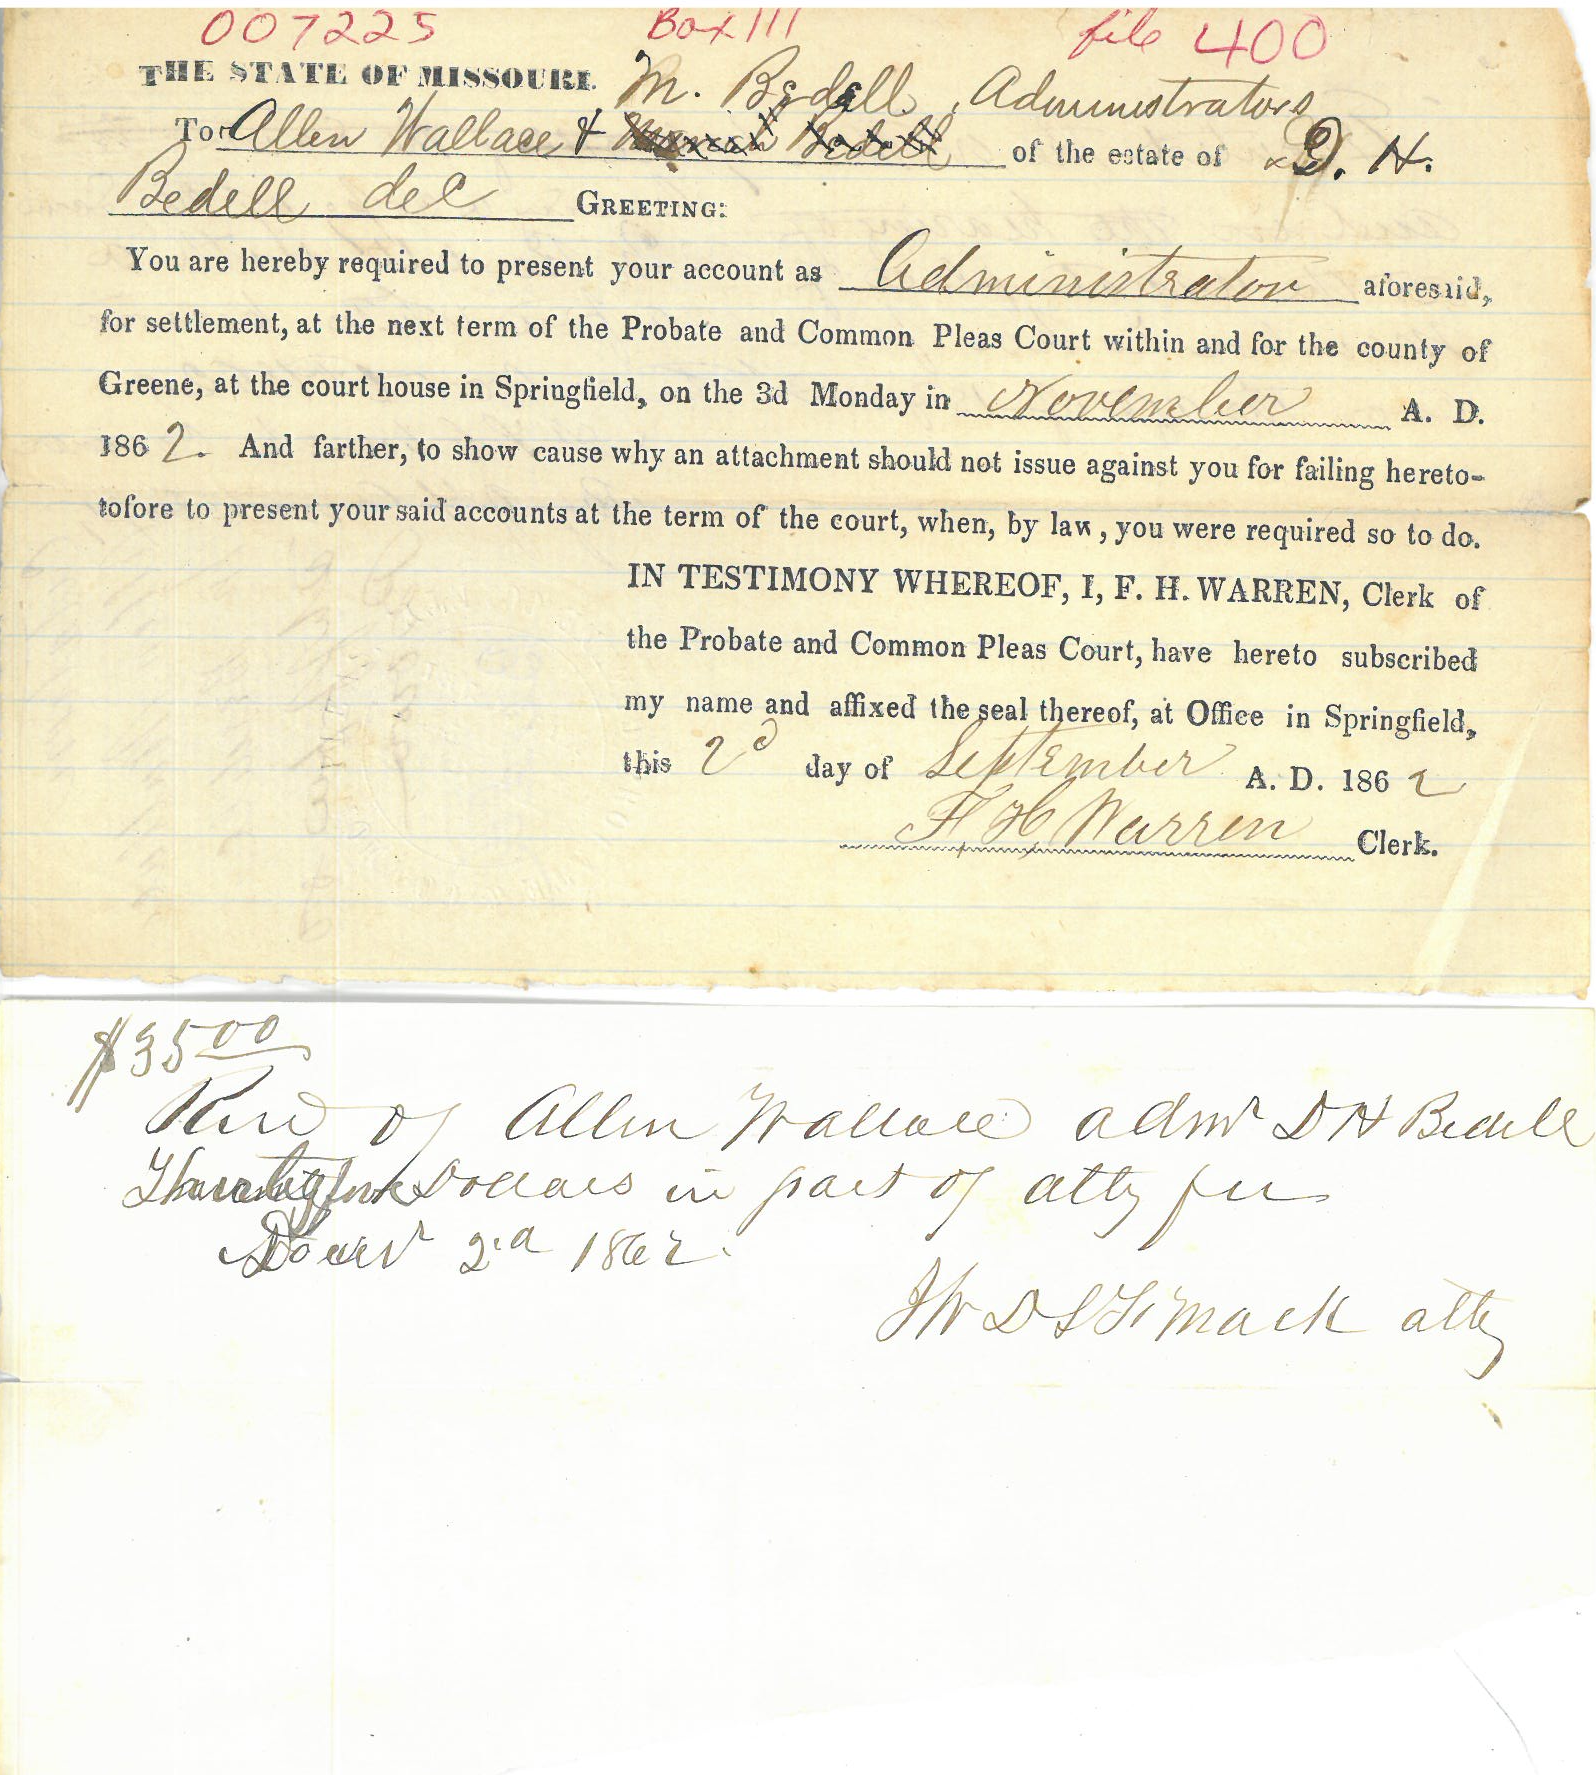 007225 Box 111 file 400
THE STATE OF MISSOURI.
M. Bedell, Administrators
To Allen Wallace & Bedell of the estate of D. H.
Bedell dec GREETING:
You are hereby required to present your account as Administrator aforesaid,
for settlement, at the next term of the Probate and Common Pleas Court within and for the county of
Greene, at the court house in Springfield, on the 3d Monday in November A. D.
1862. And farther, to show cause why an attachment should not issue against you for failing hereto-
tofore to present your said accounts at the term of the court, when, by law, you were required so to do.
IN TESTIMONY WHEREOF, I, F. H. WARREN, Clerk of
the Probate and Common Pleas Court, have hereto subscribed
my name and affixed the seal thereof, at Office in Springfield,
this 2d day of September A. D. 1862
F H Warren Clerk.
$35.00
Recd of Allen Wallace admr D H Bedell
Dollars in part of atty fee
2d 1862.
Mack atty